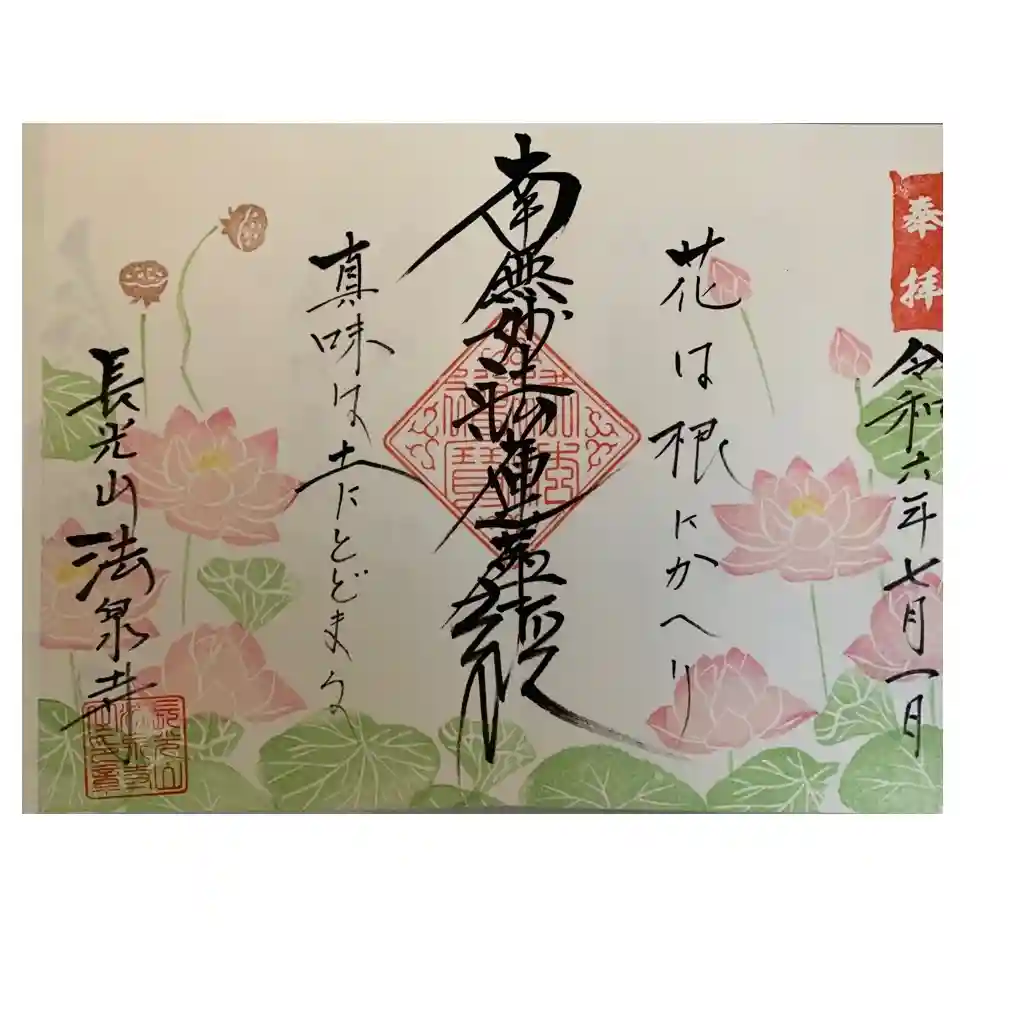 奉拝
令和六年七月一日
花は根にかへり
南無妙法蓮華経
真味は土にとどまる
長光山法泉寺